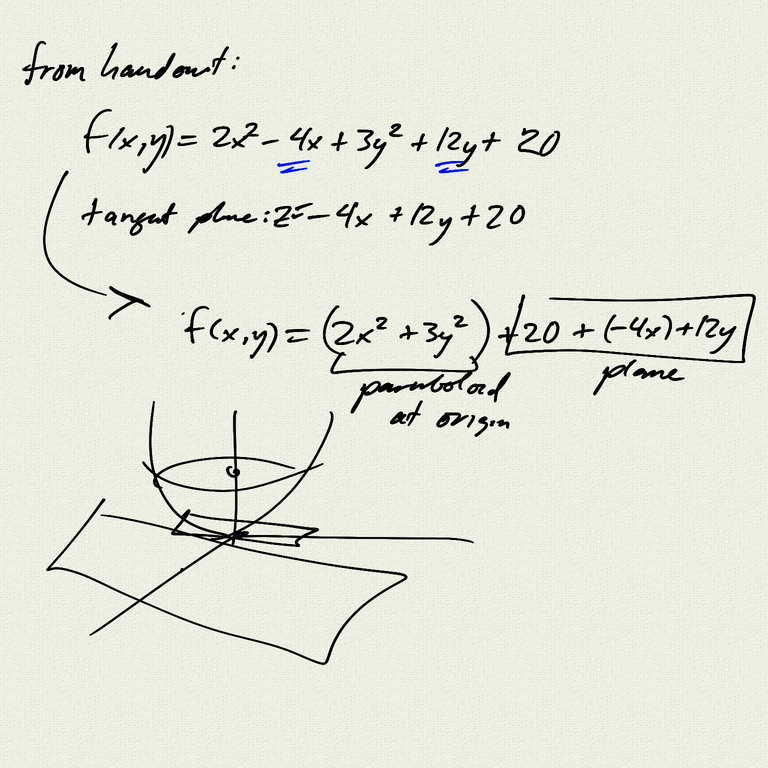 from handout:
f(x,y) = 2x² - 4x + 3y² + 12y + 20
tangent plane: z = -4x + 12y + 20
f(x,y) = (2x² + 3y²) + 20 + (-4x) + 12y
paraboloid at origin
plane